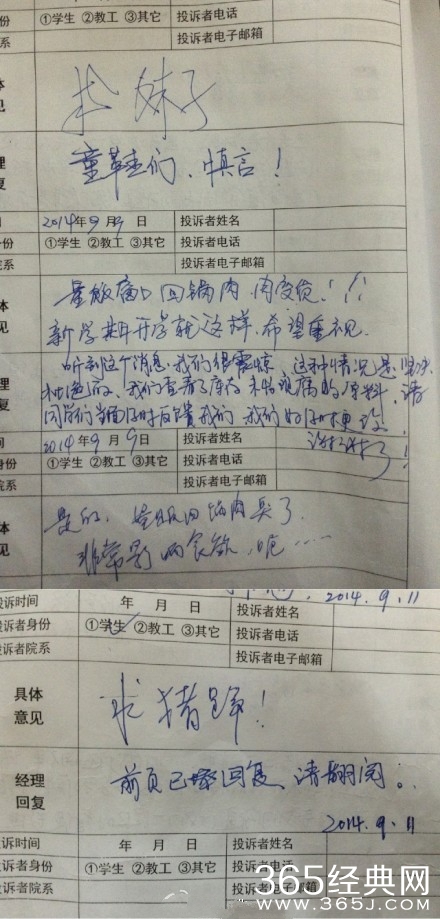 份 ①学生 ②教工 ③其它 投诉者电话
系 投诉者电子邮箱
体
见
求妹子
理
复
童鞋们、慎言！
2014年9月9日 投诉者姓名
份 ①学生 ②教工 ③其它 投诉者电话
院系 投诉者电子邮箱
体
见
量版 回锅肉 肉变质！！！
新学期开学就这样，希望重视
理
复
听到这个消息，我们很震惊 这种情况是坚决
我们查看了库存 未发现腐的原料，请
同学们当面及时反馈我们，我们
谢谢了！
间 2014年9月9日 投诉者姓名
身份 ①学生 ②教工 ③其它 投诉者电话
院系 投诉者电子邮箱
体
见
是的，量版回锅肉臭了
非常影响食欲 呃……
2014.9.11
投诉时间 年 月 日 投诉者姓名
投诉者身份 ①学生 ②教工 ③其它 投诉者电话
投诉者院系 投诉者电子邮箱
具体
意见
求猪蹄！
经理
回复
前页已经回复、请翻阅。
2014.9.11
投诉时间 年 月 日 投诉者姓名
投诉者身份 ①学生 ②教工 ③其它 投诉者电话
投诉者院系 投诉者电子邮箱
365经典网
www.365J.com